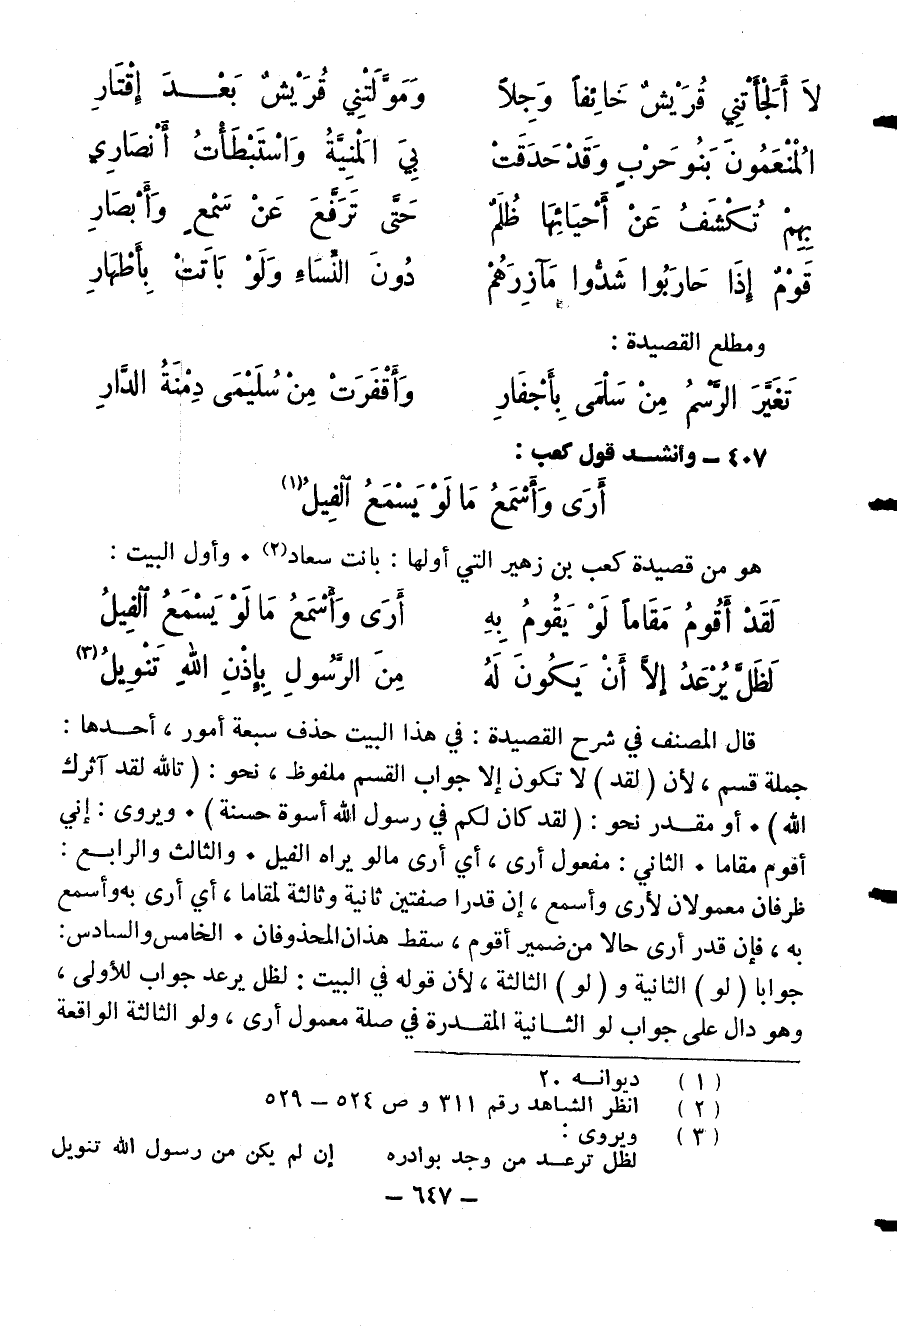 لاَ أَلْجَأْتْنِي قُرَيْشٌ خَائِفاً وَجِلاً وَمَوَّلَتْنِي قُرَيْشٌ بَعْـــدَ إِقْتَارِ
اَلْمُنْعَمُونَ بَنُو حَرْبٍ وَقَدْ حَدَقَتْ بِيَ الْمَنِيَّةُ وَاسْتَبْطَأْتُ أَنْصَارِي
بِهِمْ تُكْشَفُ عَنْ أَحْيَائِهَا ظُلَمٌ حَتَّى تَرَفَّعَ عَنْ سَمْعٍ وَأَبْصَارِ
قَوْمٌ إِذَا حَارَبُوا شَدُّوا مَآزِرَهُمْ دُونَ النِّسَاءِ وَلَوْ بَاتَتْ بِأَطْهَارِ
ومطلع القصيدة :
تَغَيَّرَ الرَّسْمُ مِنْ سَلْمَى بِأَحْفَارِ وَأَقْفَرَتْ مِنْ سُلَيْمَى دِمْنَةُ الدَّارِ
٤٠٧ ــ وانشــد قول كعب :
أَرَى وَأَسْمَعُ مَا لَوْ يَسْمَعُ الْفِيلُ(١)
هو من قصيدة كعب بن زهير التي أولها : بانت سعاد(٢) • وأول البيت :
لَقَدْ أَقُومُ مَقَاماً لَوْ يَقُومُ بِهِ أَرَى وَأَسْمَعُ مَا لَوْ يَسْمَعُ الْفِيلُ
لَظَلَّ يُرْعَدُ إِلاَّ أَنْ يَكُونَ لَهُ مِنَ الرَّسُولِ بِإِذْنِ اللهِ تَنْوِيلُ(٣)
قال المصنف في شرح القصيدة : في هذا البيت حذف سبعة أمور ، أحــدها :
جملة قسم ، لأن ( لقد ) لا تكون إلا جواب القسم ملفوظ ، نحو : ( تالله لقد آثرك
الله ) • أو مقــدر نحو : ( لقد كان لكم في رسول الله أسوة حسنة ) • ويروى : إني
أقوم مقاما • الثاني : مفعول أرى ، أي أرى مالو يراه الفيل • والثالث والرابع :
ظرفان معمولان لأرى وأسمع ، إن قدرا صفتين ثانية وثالثة لمقاما ، أي أرى به وأسمع
به ، فإن قدر أرى حالا من ضمير أقوم ، سقط هذان المحذوفان • الخامس والسادس:
جوابا ( لو ) الثانية و ( لو ) الثالثة ، لأن قوله في البيت : لظل يرعد جواب للأولى ،
وهو دال على جواب لو الثــانية المقدرة في صلة معمول أرى ، ولو الثالثة الواقعة
( ١ ) ديوانــه ٢٠
( ٢ ) انظر الشاهد رقم ٣١١ و ص ٥٢٤ – ٥٢٩
( ٣ ) ويروى :
لظل ترعــد من وجد بوادره إن لم يكن من رسول الله تنويل
– ٦٤٧ –